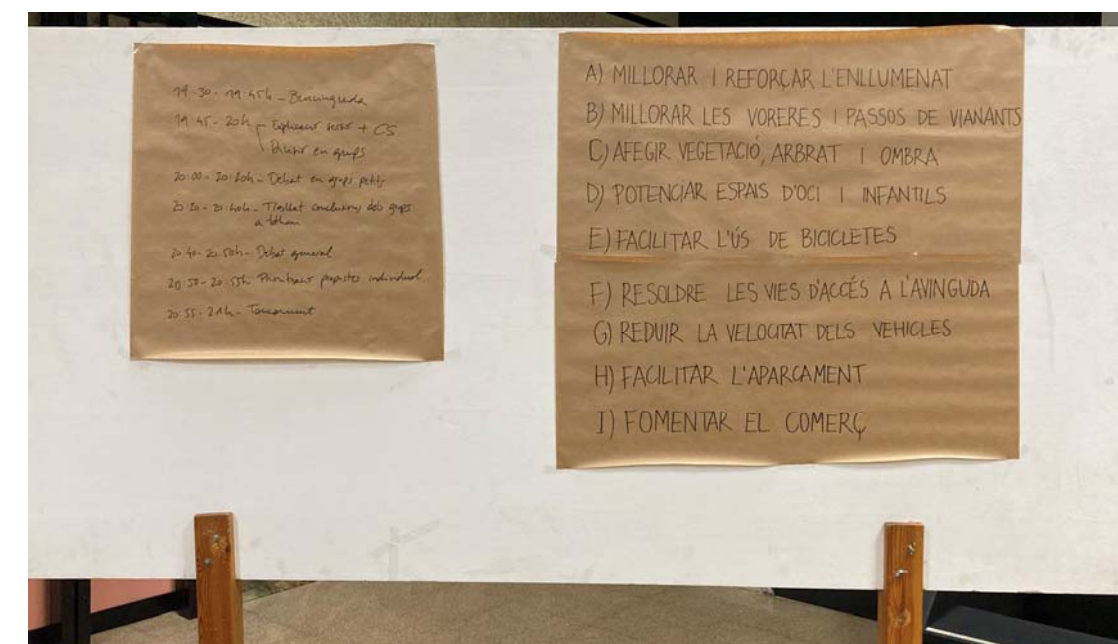 19:30 - 19:45h - Benvinguda
19:45 - 20h - Explicació sessió + CS.
Divisió en grups
20:00 - 20:20h - Debat en grups petits
20:20 - 20:40h - Trasllat conclusions dels grups
a tothom
20:40 - 20:50h - Debat general
20:50 - 20:55h Priorització propostes individual..
20:55 - 21h - Tancament
A) MILLORAR I REFORÇAR L'ENLLUMENAT
B) MILLORAR LES VORERES I PASSOS DE VIANANTS
C) AFEGIR VEGETACIÓ, ARBRAT I OMBRA
D) POTENCIAR ESPAIS D'OCI I INFANTILS
E) FACILITAR L'ÚS DE BICICLETES
F) RESOLDRE LES VIES D'ACCÉS A L'AVINGUDA
G) REDUIR LA VELOCITAT DELS VEHICLES
H) FACILITAR L'APARCAMENT
I) FOMENTAR EL COMERÇ